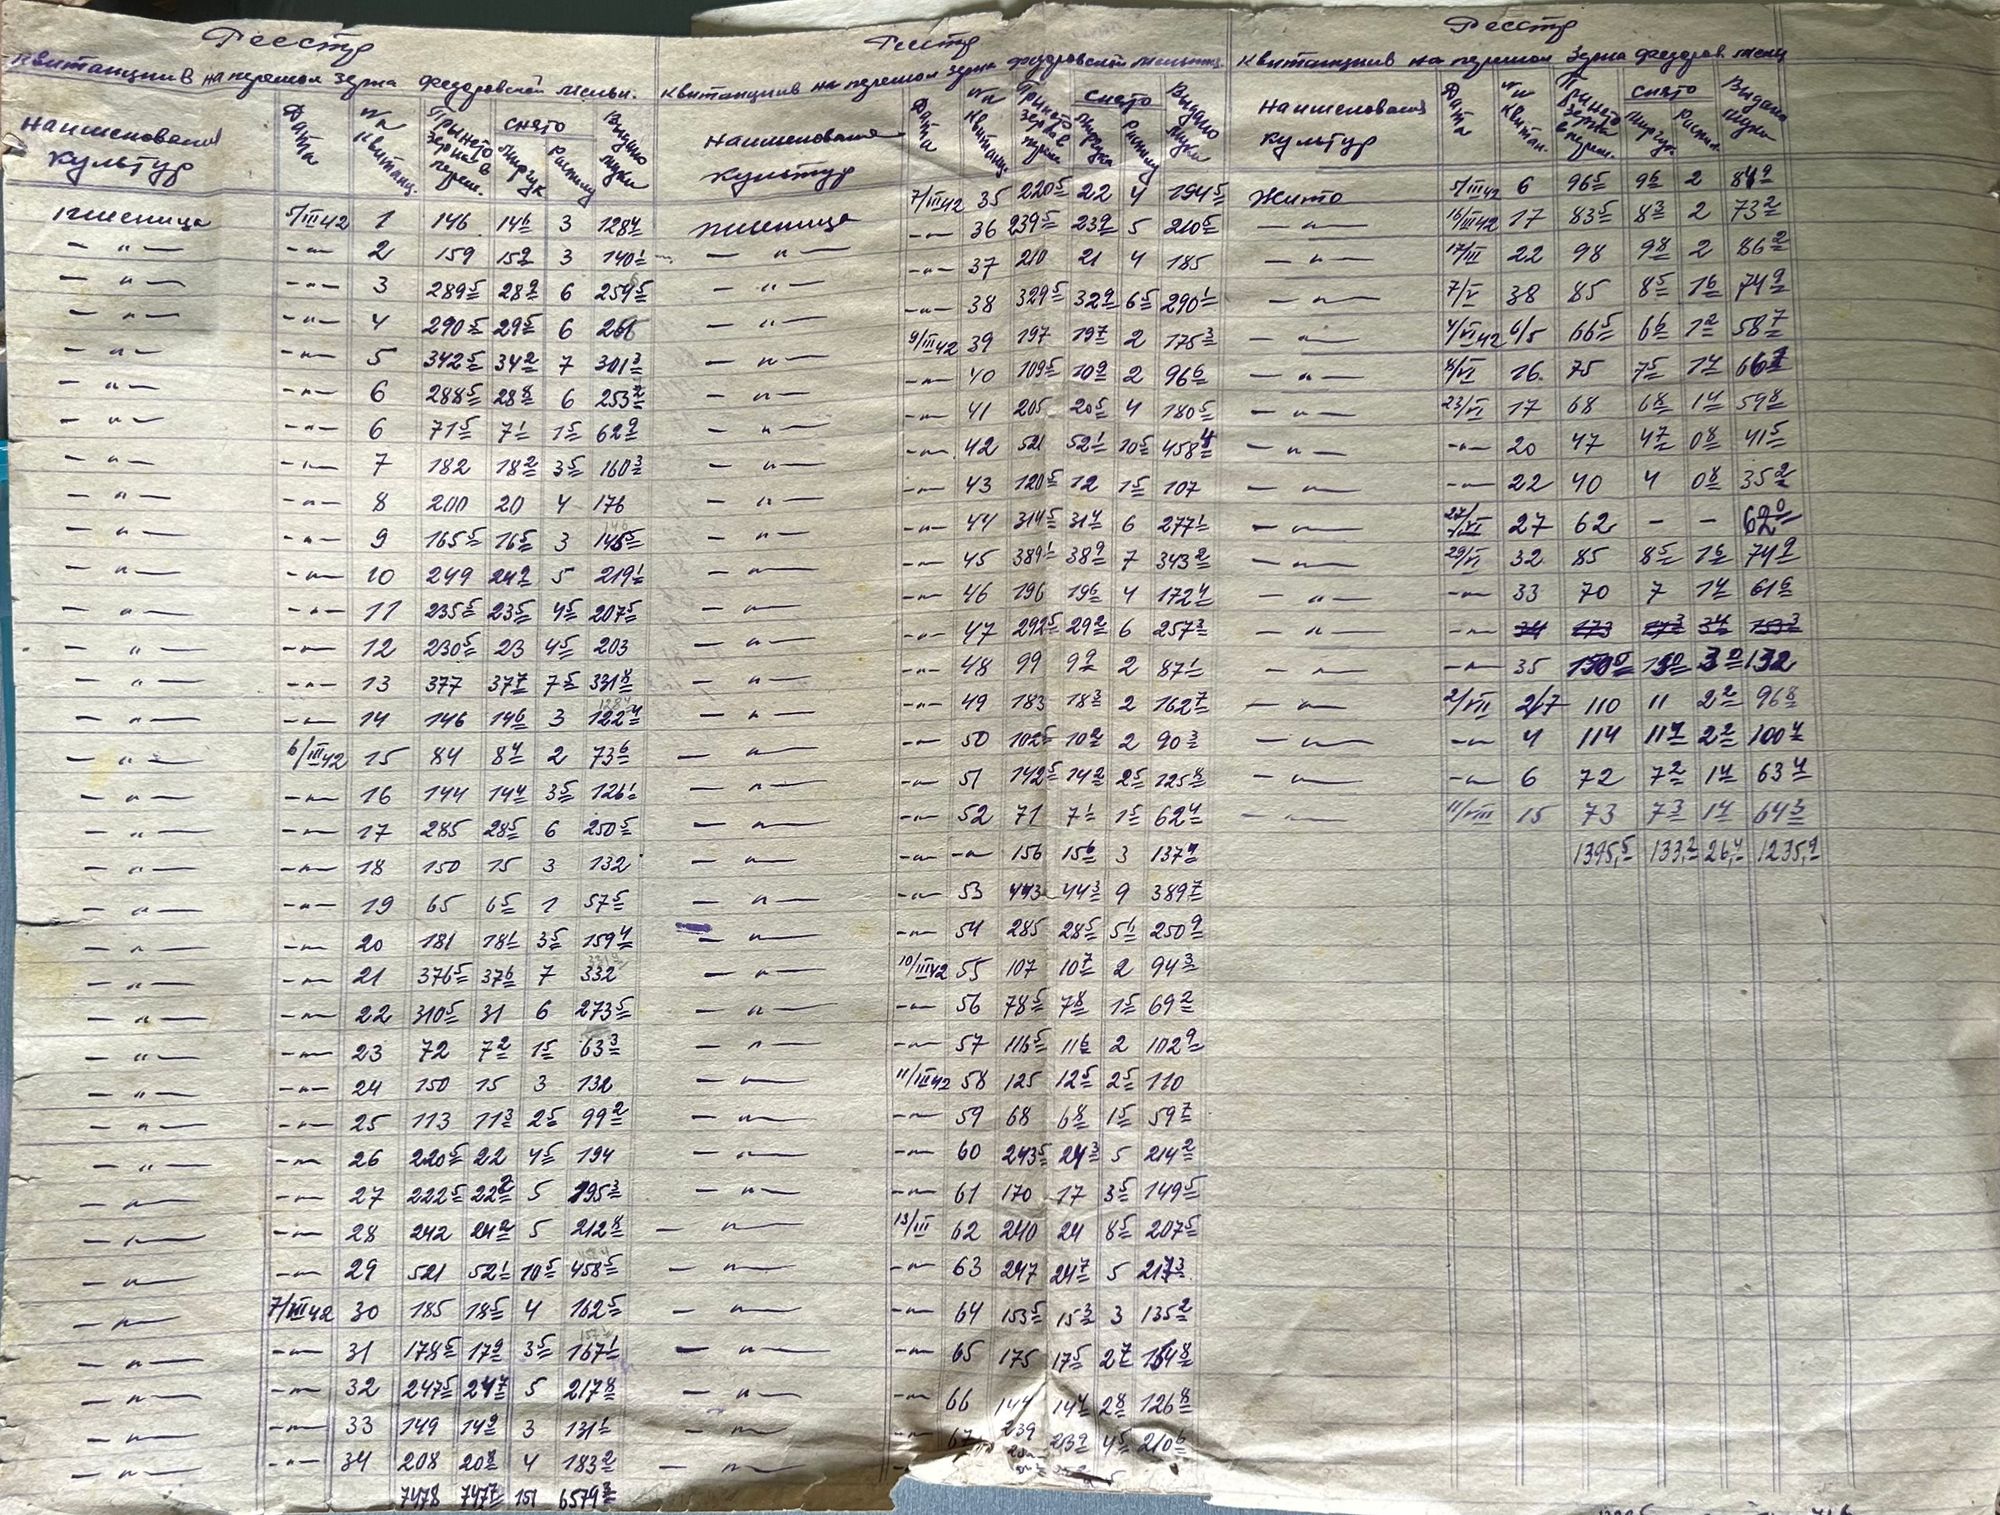 Реестр
квитанциив на перемол зерна федоровской мельн.
Наименования культур Дата №№ квитанц. Прынето зерна в перем. снято мирчук Распилу Выдано муки
пшеница 5/III 42 1 146 14 6 3 128 4
— " — —"— 2 159 15 9 3 140 1
— " — —"— 3 289 5 28 9 6 254 5
— " — —"— 4 290 5 29 5 6
— " — —"— 5 342 5 34 2 7 301 3
— " — —"— 6 288 5 28 8 6 253 7
— " — —"— 6 71 5 7 1 1 5 62 9
— " — —"— 7 182 18 2 3 5 160 3
— " — —"— 8 200 20 4 176
— " — —"— 9 165 5 16 5 3
— " — —"— 10 249 24 9 5 219 1
— " — —"— 11 235 5 23 5 4 5 207 5
— " — —"— 12 230 5 23 4 5 203
— " — —"— 13 377 37 7 7 5 331 8
— " — —"— 14 146 14 6 3 122 4
— " — 6/III 42 15 84 8 4 2 73 6
— " — —"— 16 144 14 4 3 5 126 1
— " — —"— 17 285 28 5 6 250 5
— " — —"— 18 150 15 3 132
— " — —"— 19 65 6 5 1 57 5
— " — —"— 20 181 18 1 3 5 159 4
— " — —"— 21 376 5 37 6 7 332
— " — —"— 22 310 5 31 6 273 5
— " — —"— 23 72 7 2 1 5 63 3
— " — —"— 24 150 15 3 132
— " — —"— 25 113 11 3 2 5 99 2
— " — —"— 26 220 5 22 4 5 194
— " — —"— 27 222 5 22 2 5 195 3
— " — —"— 28 242 24 2 5 212 8
— " — —"— 29 521 52 1 10 5 458 5
— " — 7/III 42 30 185 18 5 4 162 5
— " — —"— 31 178 5 17 9 3 5 167 1
— " — —"— 32 247 5 24 7 5 217 8
— " — —"— 33 149 14 9 3 131 1
— " — —"— 34 208 20 8 4 183 2
7478 747 7 151 6579 3
Реестр
квитанциив на перемол зерна федоровской мельниц.
Наименования культур Дата №№ квитанц. Прынято зерна в перем. снято мирчука Распилу Выдано муки
пшеница 7/III 42 35 220 5 22 4 194 5
— " — —"— 36 239 5 23 9 5 210 5
— " — —"— 37 210 21 4 185
— " — —"— 38 329 5 32 9 6 5 290 1
— " — 9/III 42 39 197 19 7 2 175 3
— " — —"— 40 109 5 10 9 2 96 6
— " — —"— 41 205 20 5 4 180 5
— " — —"— 42 521 52 1 10 5 458 4
— " — —"— 43 120 5 12 1 5 107
— " — —"— 44 314 5 31 4 6 277 1
— " — —"— 45 389 1 38 9 7 343 2
— " — —"— 46 196 19 6 4 172 4
— " — —"— 47 292 5 29 2 6 257 3
— " — —"— 48 99 9 9 2 87 1
— " — —"— 49 183 18 3 2 162 7
— " — —"— 50 102 5 10 2 2 90 3
— " — —"— 51 142 5 14 2 2 5 125 8
— " — —"— 52 71 7 1 1 5 62 4
— " — —"— —"— 156 15 6 3 137 4
— " — —"— 53 443 44 3 9 389 7
— " — —"— 54 285 28 5 5 6 250 9
— " — 10/III 42 55 107 10 7 2 94 3
— " — —"— 56 78 5 7 8 1 5 69 2
— " — —"— 57 116 5 11 6 2 102 9
— " — 11/III 42 58 125 12 5 2 5 110
— " — —"— 59 68 6 8 1 5 59 7
— " — —"— 60 243 5 24 3 5 214 2
— " — —"— 61 170 17 3 5 149 5
— " — 13/III 62 240 24 8 5 207 5
— " — —"— 63 247 24 7 5 217 3
— " — —"— 64 153 5 15 3 3 135 2
— " — —"— 65 175 17 5 2 7 154 8
— " — —"— 66 144 14 4 2 8 126 8
— " — —"— 67 239 23 9 4 5 210 6
Реестр
Квитанциив на перемол зерна федоров. мелн
Наименования культур Дата №№ квитан. Прынято зерна в перем. снято мирчук. Распил. Выдано муки
Жито 5/III 42 6 96 5 9 6 2 84 9
— " — 16/III 42 17 83 5 8 3 2 73 2
— " — 17/III 22 98 9 8 2 86 2
— " — 7/V 38 85 8 5 1 6 74 9
— " — 4/VI 42 6/5 66 5 6 6 1 2 58 7
— " — 16 75 7 5 1 4 66 7
— " — 23/VI 17 68 6 8 1 4 59 8
— " — —"— 20 47 4 7 0 8 41 5
— " — —"— 22 40 4 0 8 35 2
— " — 27/VI 27 62 – – 62 0
— " — 29/VI 32 85 8 5 1 6 74 9
— " — —"— 33 70 7 1 4 61 6
— " — —"— 34 173 17 3 3 4 153 3
— " — —"— 35 150 0 15 0 3 0 132
— " — 2/VII 2/7 110 11 2 2 96 8
— " — —"— 4 114 11 4 2 2 100 4
— " — —"— 6 72 7 2 1 4 63 4
— " — 11/VIII 15 73 7 3 1 4 64 3
1395,5 133,2 26,4 1235,9